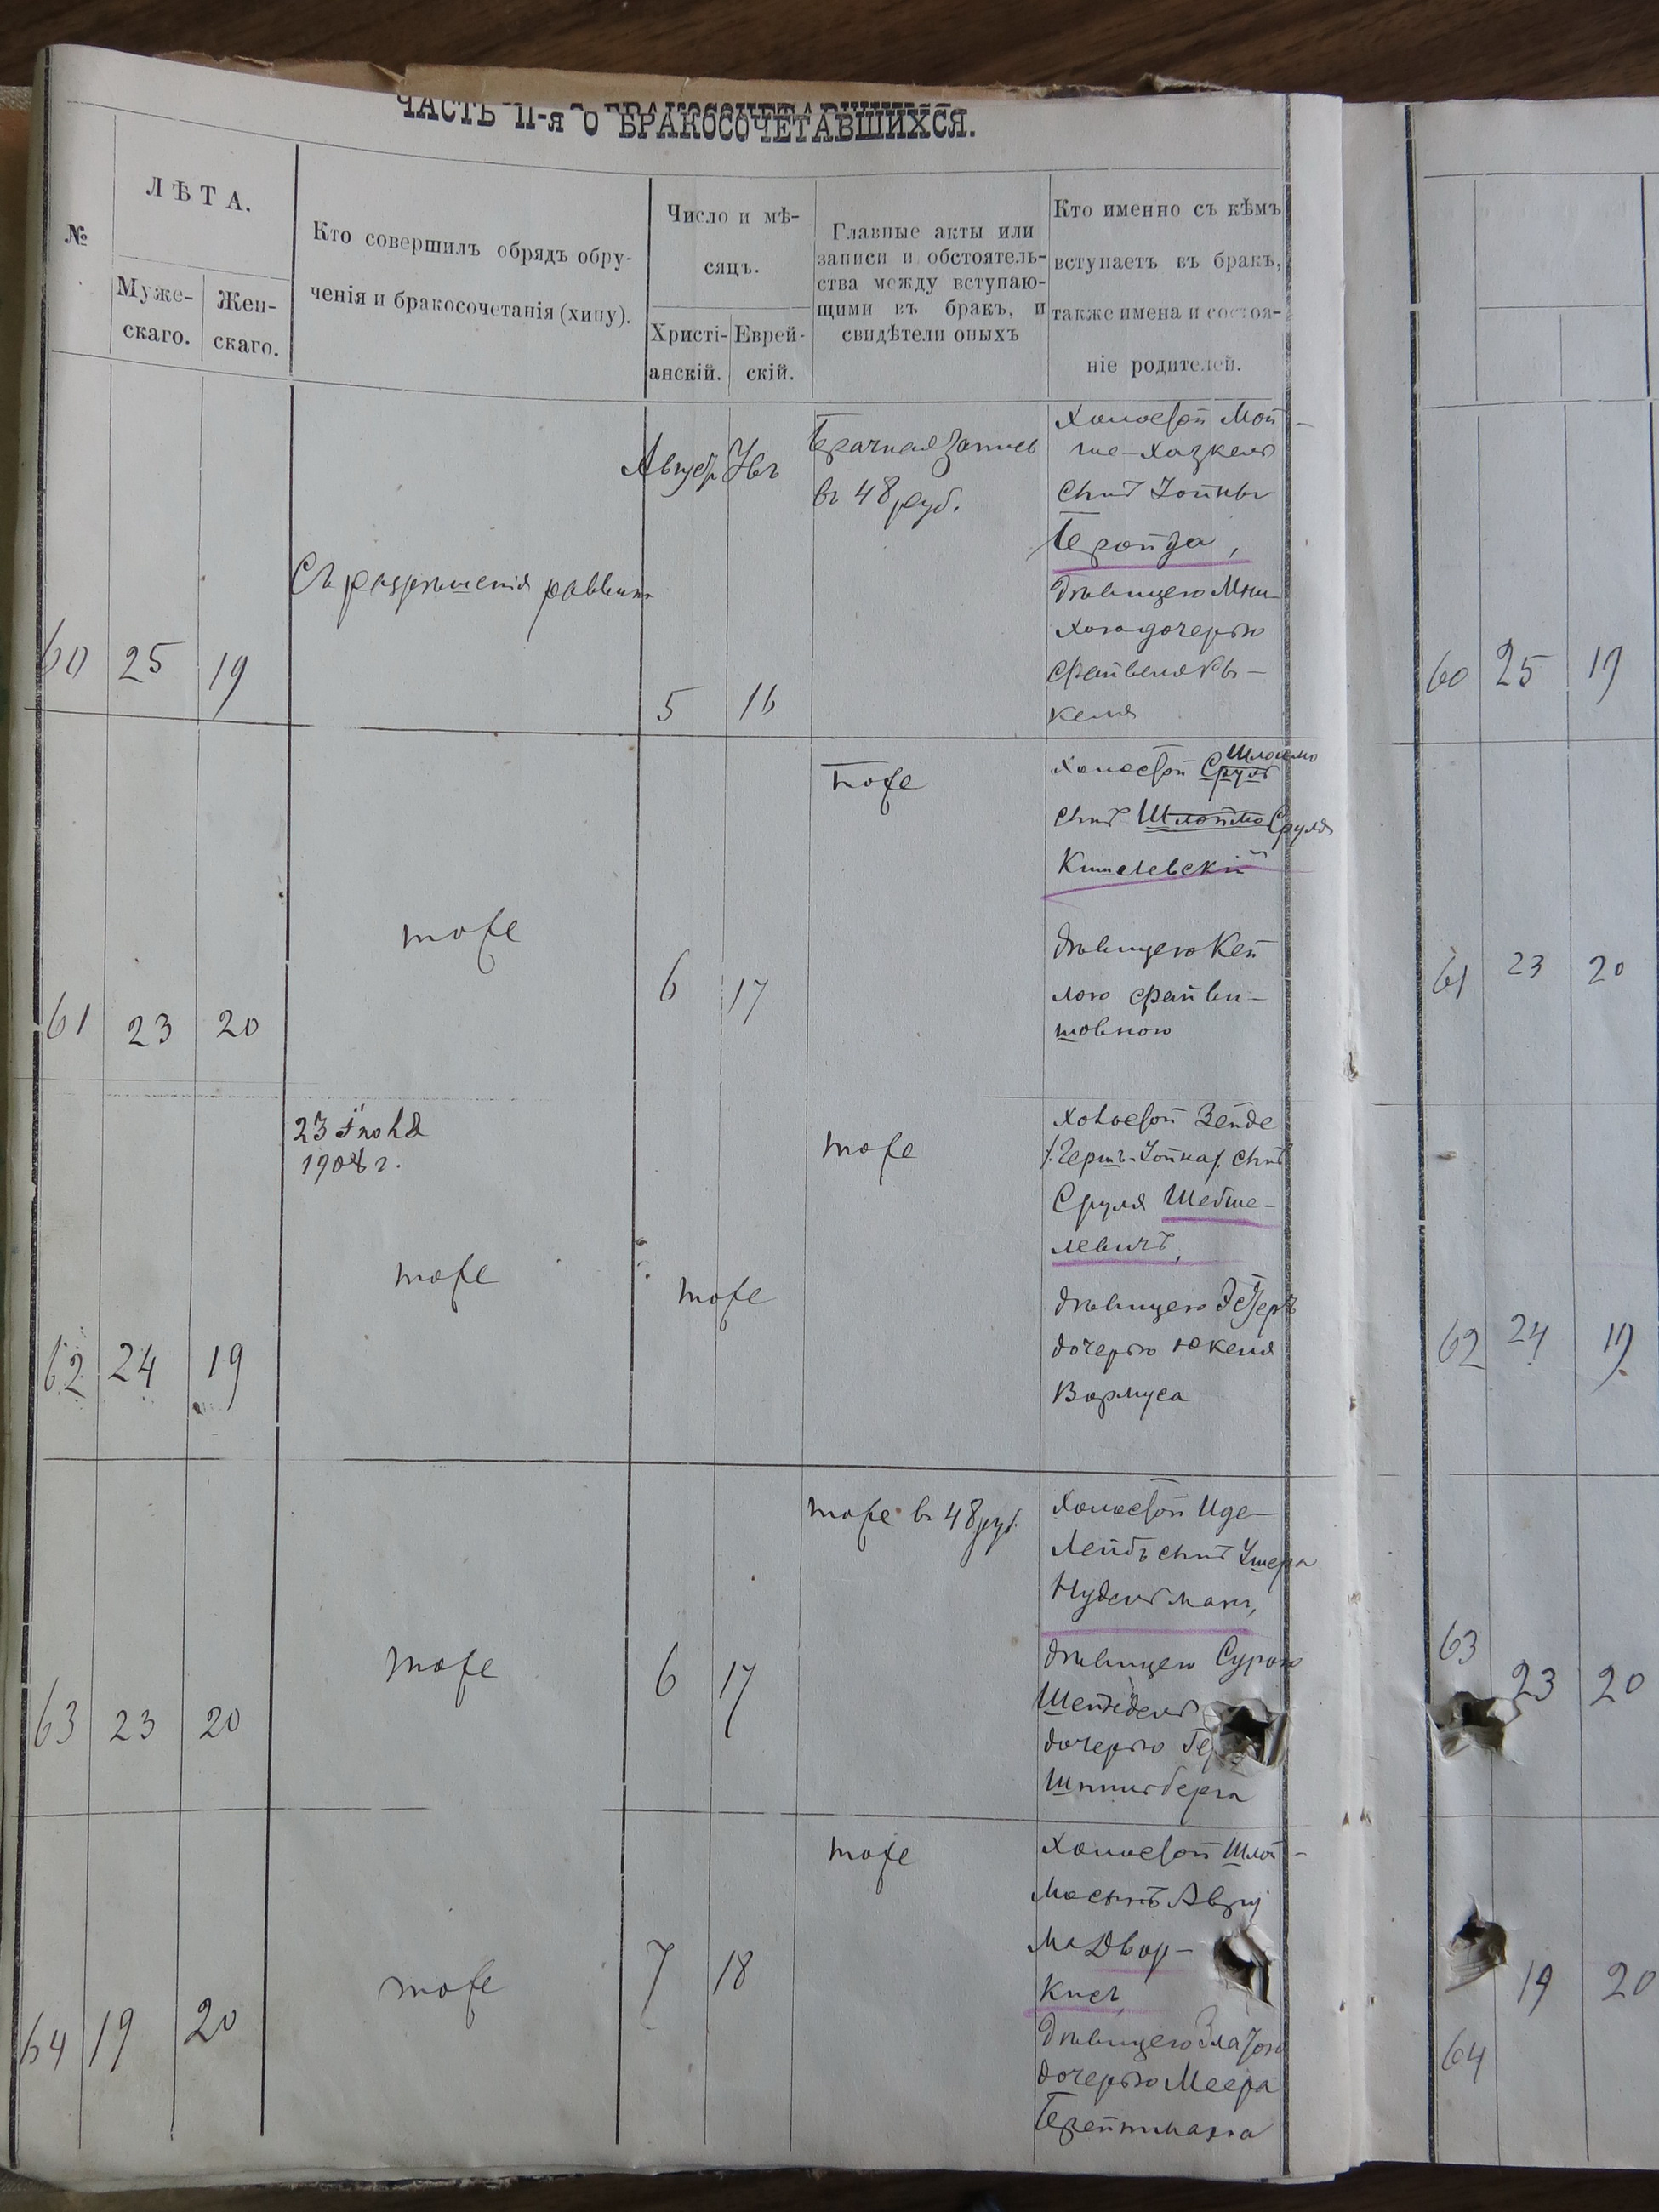 ЧАСТЬ II-я О БРАКОСОЧЕТАВШИХСЯ.
№
ЛѢТА.
Муже-
скаго.
Жен-
скаго.
Кто совершилъ обрядъ обру-
ченія и бракосочетанія (хипу).
Число и мѣ-
сяцъ.
Христі-
анскій.
Еврей-
скій.
Главные акты или
записи и обстоятель-
ства между вступаю-
щими въ бракъ, и
свидѣтели оныхъ
Кто именно съ кѣмъ
вступаетъ въ бракъ,
также имена и состоя-
ніе родителей.
60 25 19
Съ разрѣшенія раввина
Август
5 16
Брачная запись
въ 48 руб.
Холостой Мой-
ше-Хазкель
сынъ Іойны
дѣвицею
дочерью
60 25 19
61 23 20
тоже
6 17
тоже
Холостой Сруль Шлоймо
сынъ Шлоймо Сруля
Кишелевскій
дѣвицею Кей
лою Файви-
шовною
61 23 20
23 Іюня
1908 г.
62 24 19
тоже
тоже
тоже
Холостой Зейде
Герш-Іойна сынъ
Сруля Шебше-
левичъ,
дѣвицею Эстеръ
дочерью Юкеля
Вормуса
62 24 19
63 23 20
тоже
6 17
тоже въ 48 руб.
Холостой Иде-
Лейбъ сынъ Ушера
Нудельманъ,
дѣвицею Сурою
Шейндель
дочерью Ге
63 23 20
64 19 20
тоже
7 18
тоже
Холостой Шлой-
ма сынъ Авру
ма Двор-
кисъ,
дѣвицею Златою
дочерью Меера
64 19 20